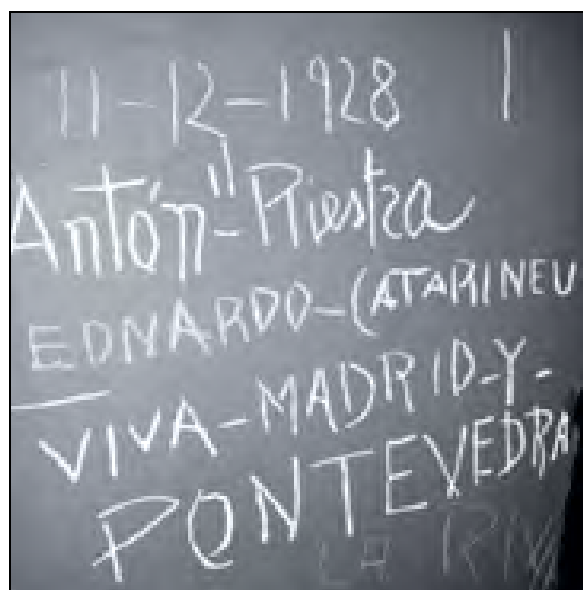 11-12-1928
Antón"-Riestra
EDNARDO-CATARINEU
VIVA-MADRID-Y-
PONTEVEDRA
LA